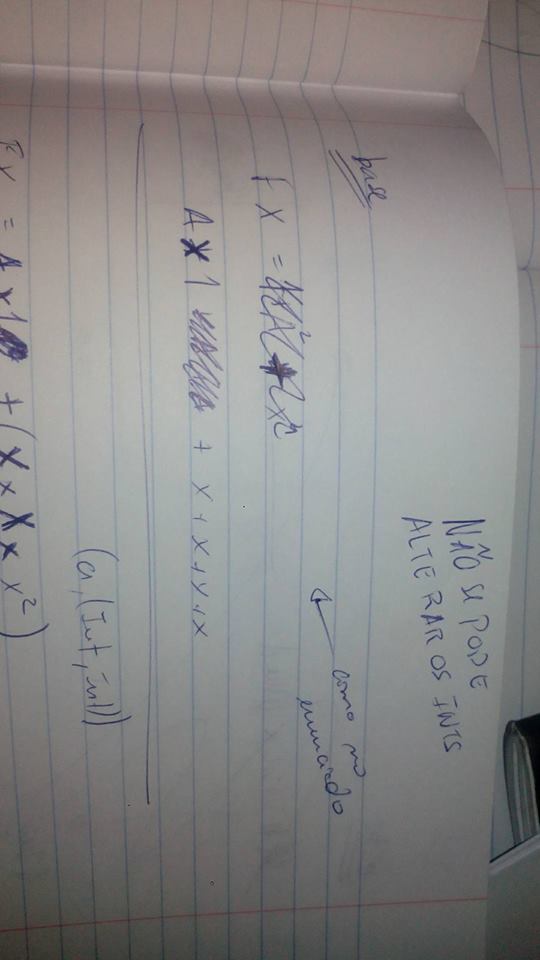 NÃO SE PODE
ALTERAR OS INTS
base
como no
enunciado
F X =
A x 1 + x + x + y + x
(a, (Int, int))
FX = A x 1 + (X x X x x²)